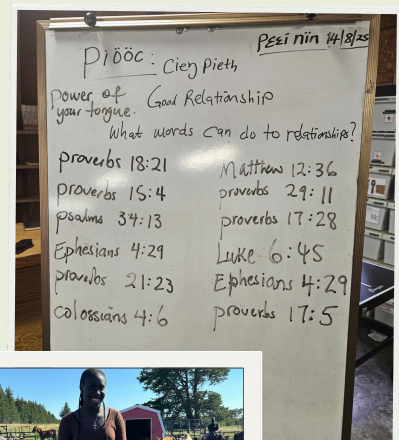 Pɛɛi nïn 14/8/25
Piööc: Cieŋ Pieth
power of your tongue.
Good Relationship
What words can do to relationships?
proverbs 18:21
proverbs 15:4
psalms 34:13
Ephesians 4:29
proverbs 21:23
colossians 4:6
Matthew 12:36
proverbs 29:11
proverbs 17:28
Luke 6:45
Ephesians 4:29
proverbs 17:5